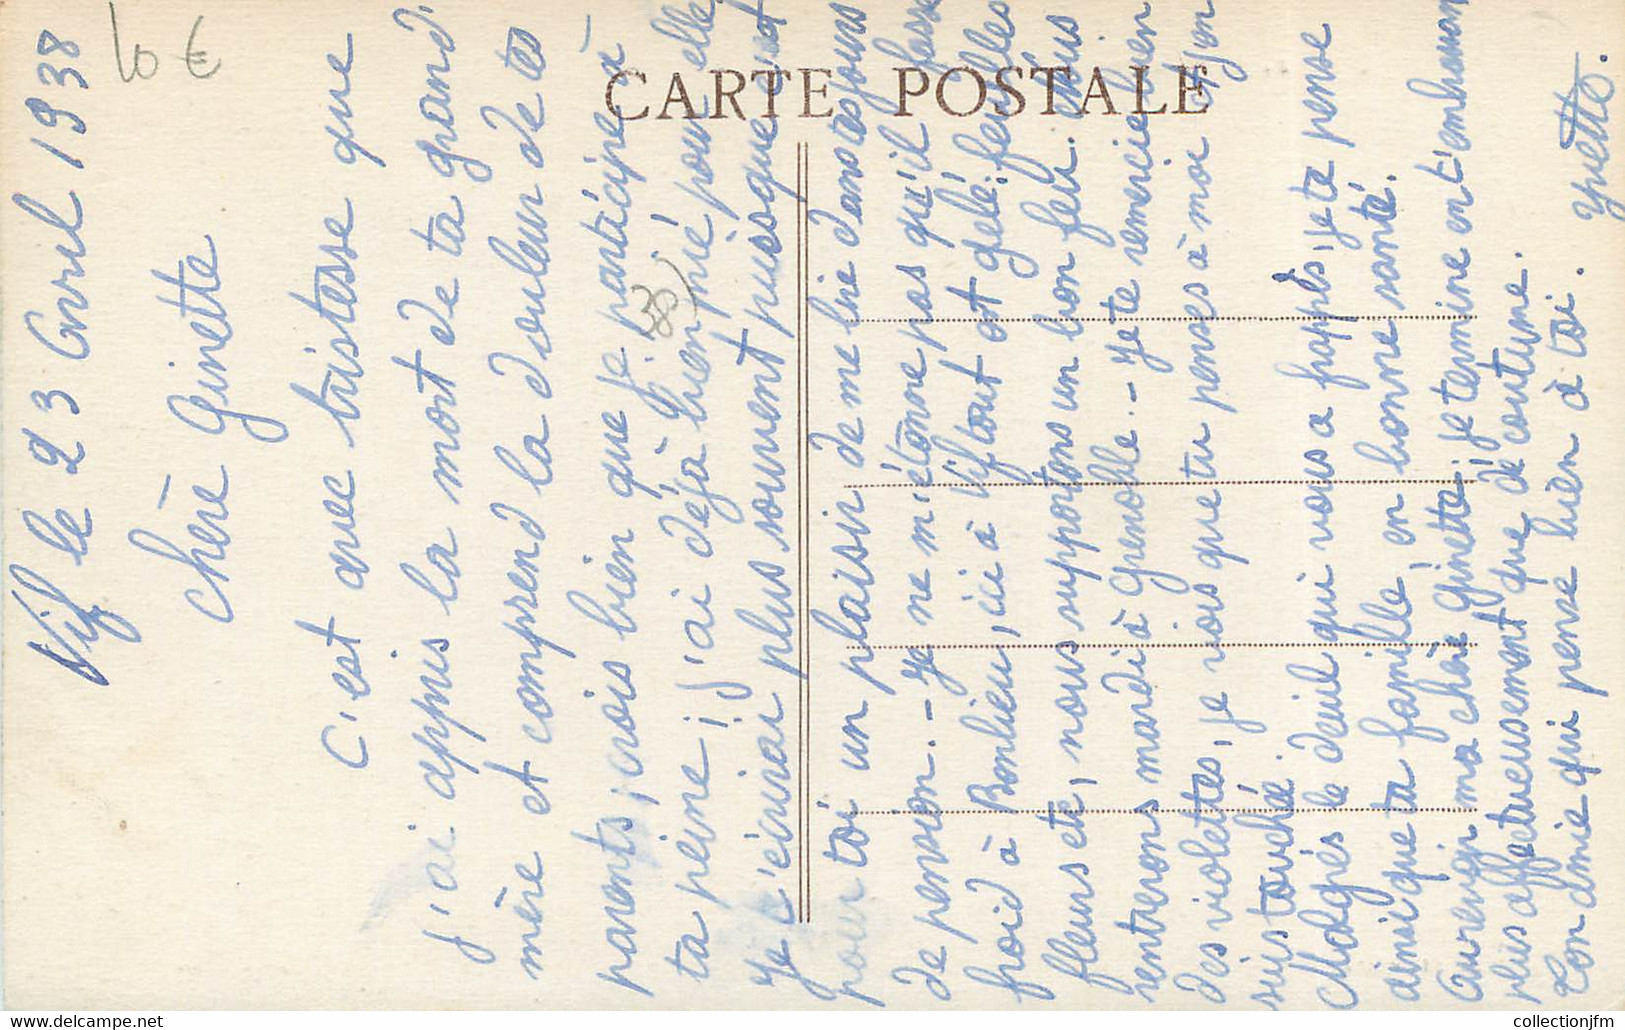 10 €
CARTE POSTALE
Vif le 23 Avril 1938
Chère Ginette
C'est avec tristesse que
j'ai appris la mort de ta grand'
mère et comprend la douleur de tes
parents, crois bien que je participe à
ta peine ; j'ai déjà bien prié pour elle
Je t'écrirai plus souvent puisque c'est
pour toi un plaisir de me lire dans tes jours
de pension. - Je ne m'étonne pas qu'il fasse
froid à Bonlieu, ici à Vif tout est gelé, feuilles
fleurs etc, nous supportons un bon feu. Nous
rentrerons mardi à Grenoble. - Je te remercie bien
des violettes, je vois que tu penses à moi et j'en
suis touchée.
Malgrés le deuil qui vous a frappés, je te pense
ainsi que ta famille, en bonne santé.
Au revoir ma chère Ginette, je termine en t'embrassant
plus affectueusement que de coutume.
Ton amie qui pense bien à toi. Yvette.
(38)
collectionjfm